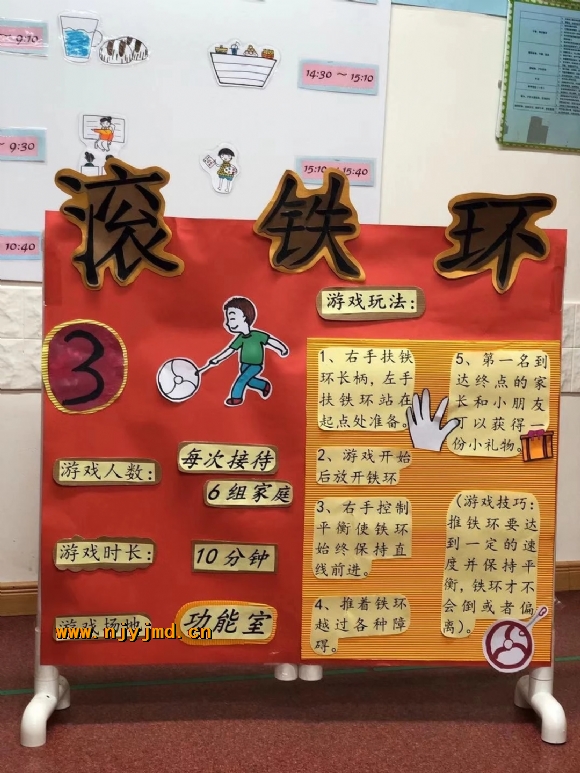 ~ 9:10
14:30 ~ 15:10
~ 9:30
15:10 ~ 15:40
10:40
滚铁环
3
游戏人数:
每次接待
6组家庭
游戏时长:
10分钟
游戏场地:
功能室
www.njyjmd.cn
游戏玩法:
1、右手扶铁
环长柄,左手
扶铁环站在
起点处准备。
2、游戏开始
后放开铁环
3、右手控制
平衡使铁环
始终保持直
线前进。
4、推着铁环
越过各种障
碍。
5、第一名到
达终点的家
长和小朋友
可以获得一
份小礼物。
(游戏技巧:
推铁环要达
到一定的速
度并保持平
衡,铁环才不
会倒或者偏
离)。